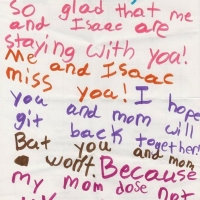 So glad that me
and Isaac are
staying with you!
Me and Isaac
miss you! I hope
you and mom will
git back together!
But you and mom
wont. Because
my mom dose not